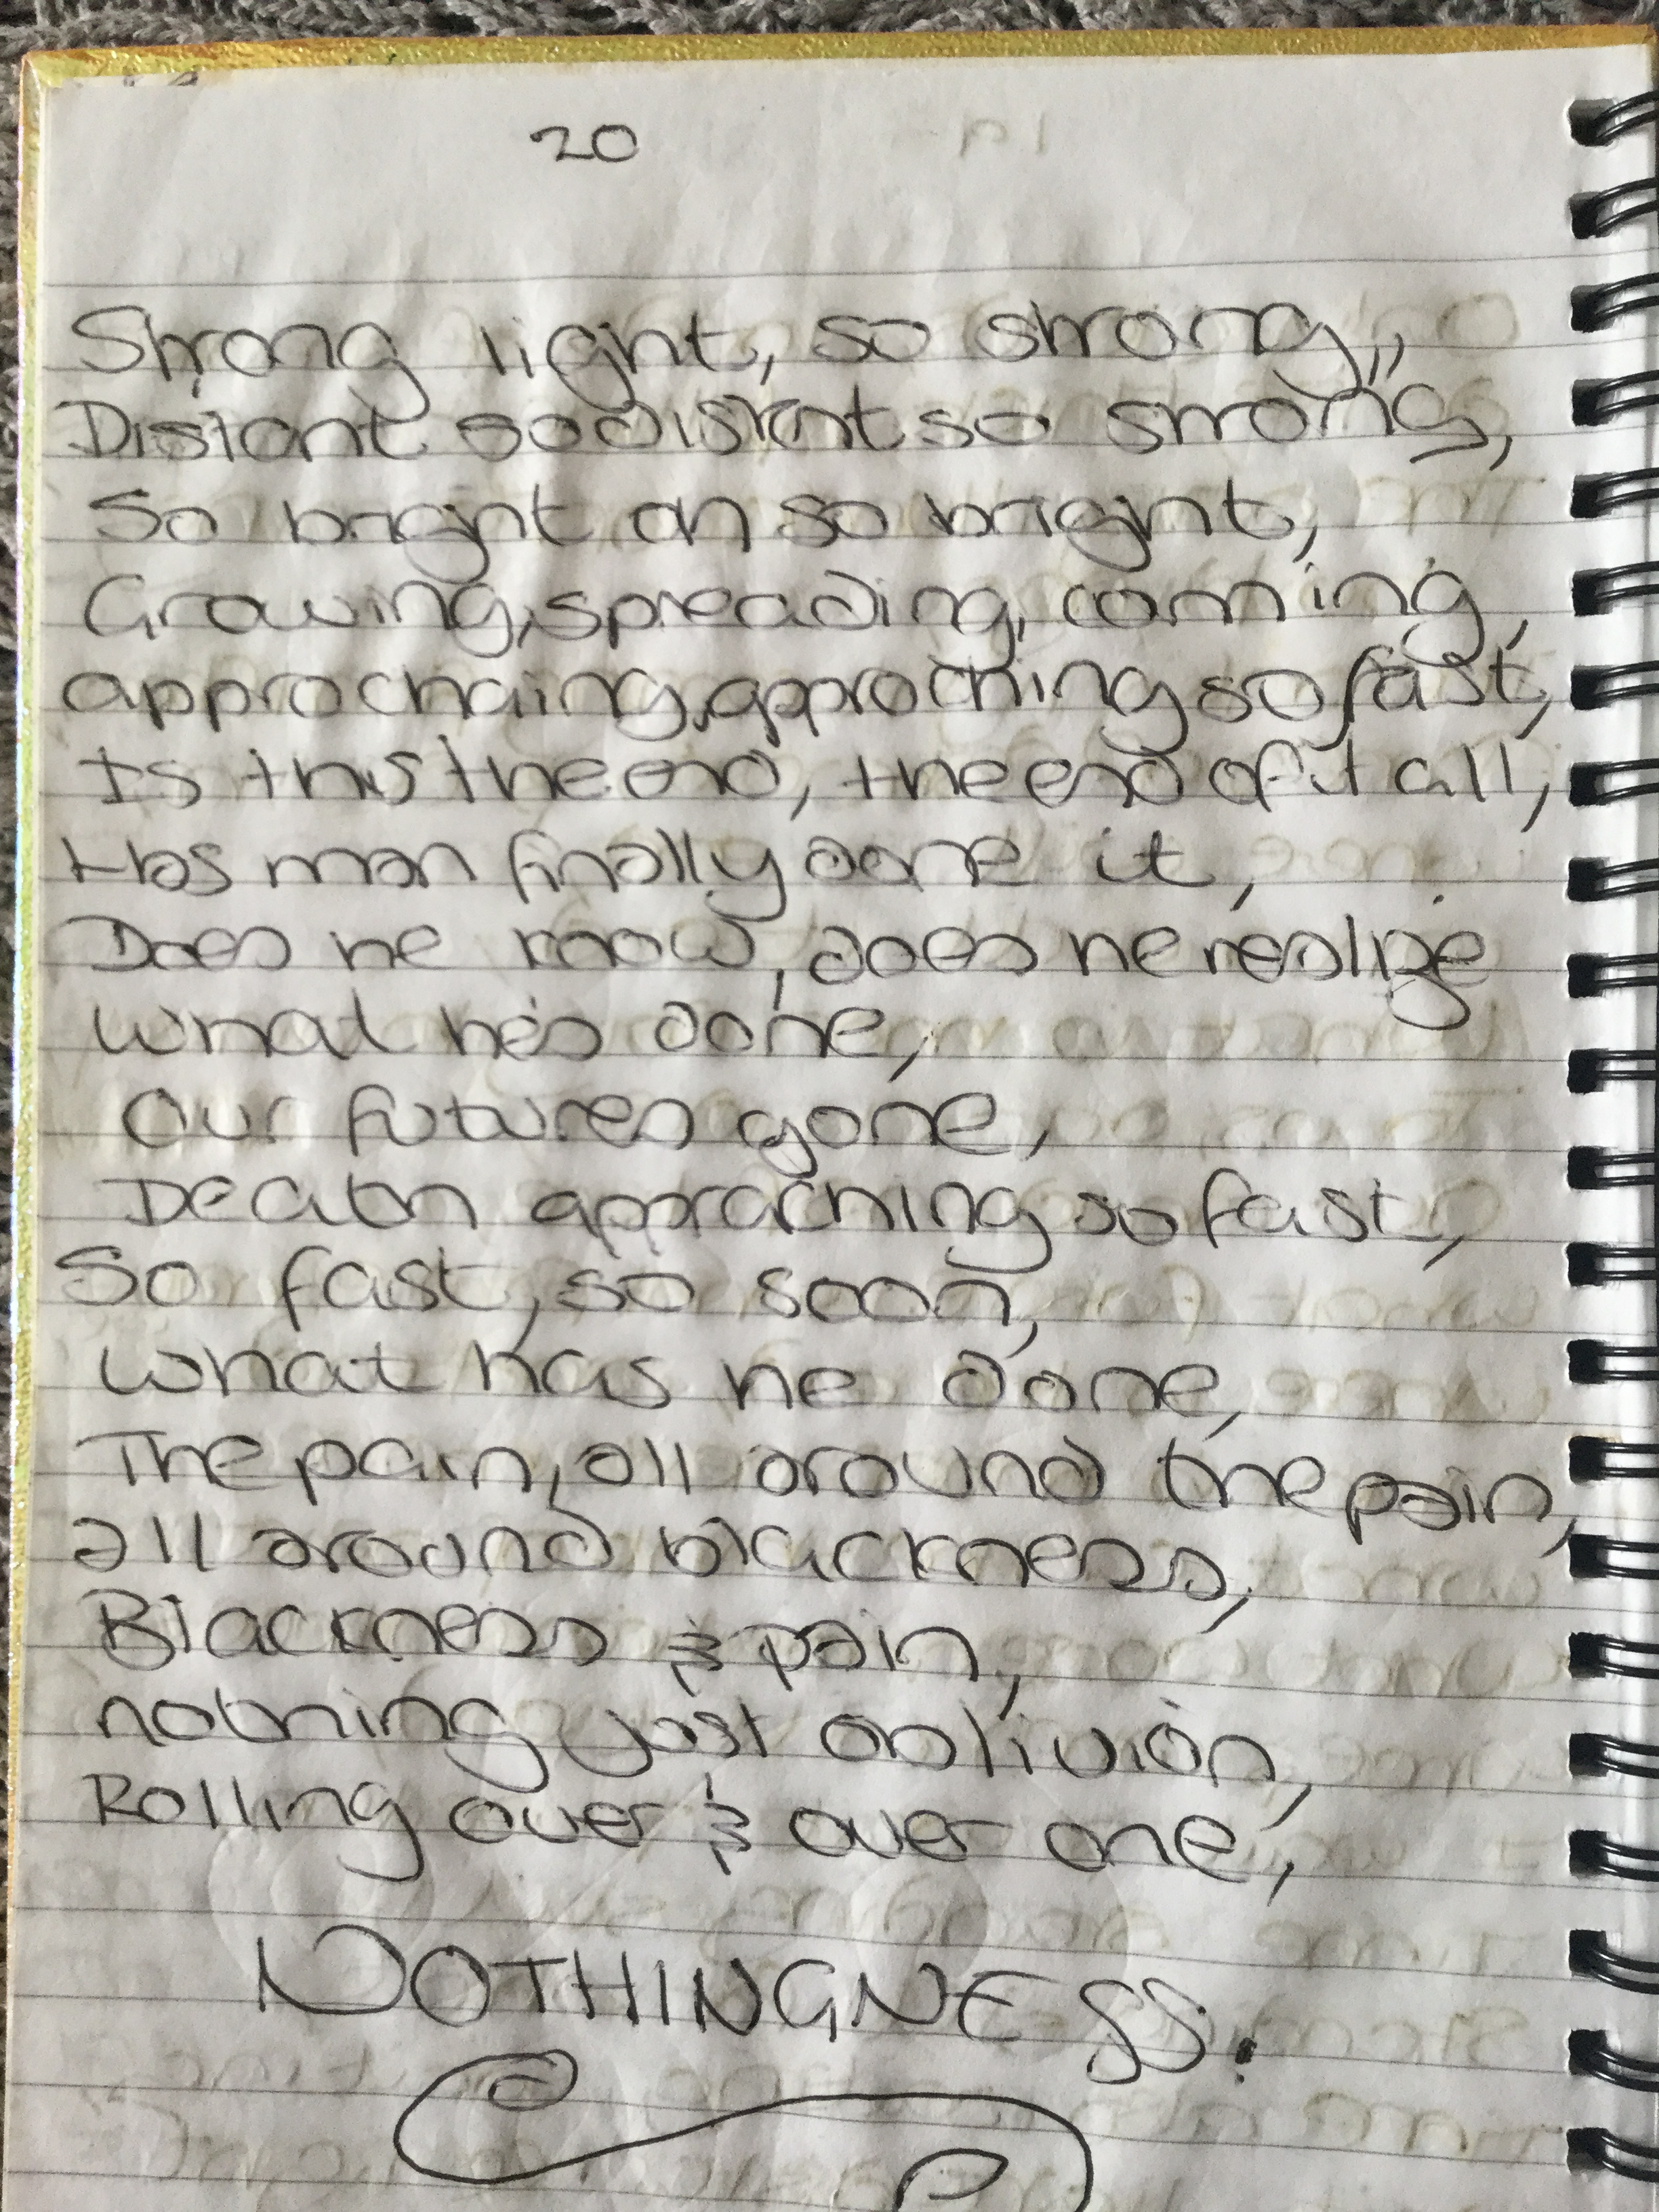 20
Strong light, so strong,,
Distant so distant so strong,
So bright oh so bright,
Growing, spreading, coming,
approchaing, approching so fast,
Is this the end, the end of it all,
Has man finally done it,
Does he know, does he realize
what he's done,
Our futures gone,
Death approaching so fast,
So fast, so soon,
what has he done,
The pain, all around the pain,
all around blackness,
Blackness & pain,
nothing just oblivion,
Rolling over & over one,
NOTHINGNESS.